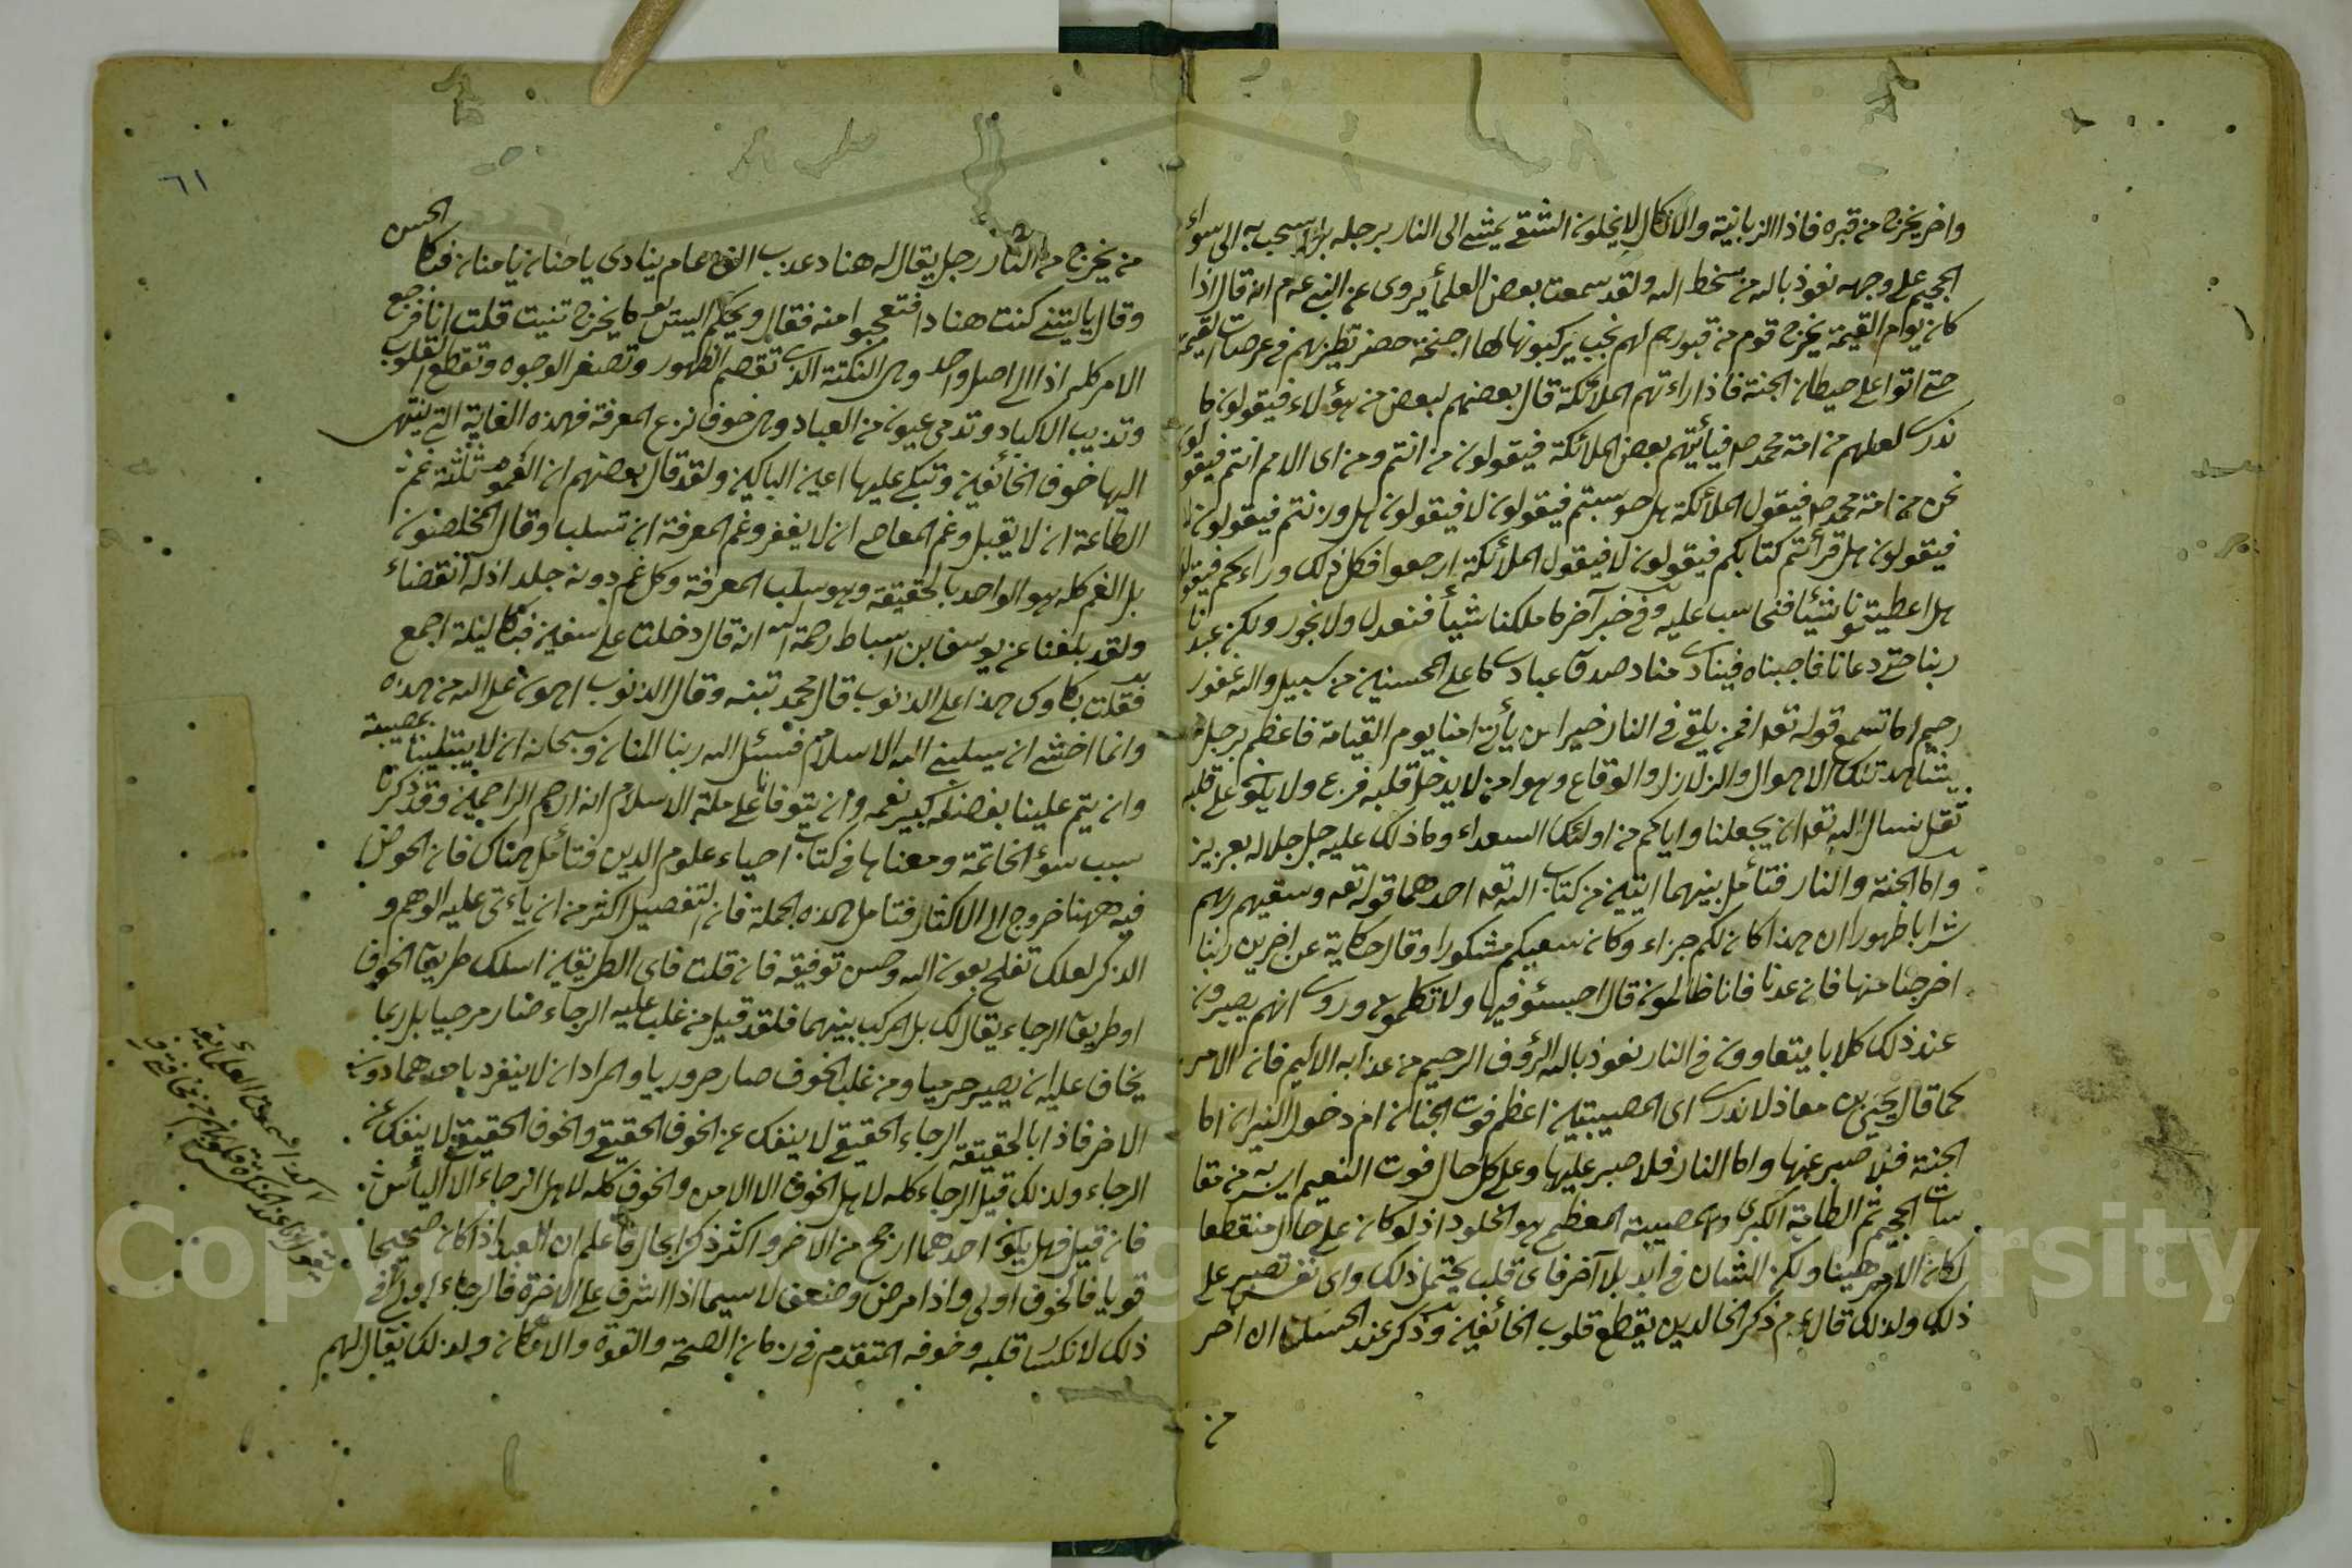 واخر يخرج من قبره فاذا الزبانية والانكال لا يخلون الشقي يمشي الى النار برجله بل يسحب به الى سواء
الجحيم على وجهه نعوذ بالله من سخط الله ولقد سمعت بعض العلماء يروى عن النبي عم انه قال اذا
كان يوم القيمة يخرج قوم من قبورهم لهم نجب يركبونها لها اجنحة خضر تطير بهم في عرصات القيمة
حتى اتوا على حيطان الجنة فاذا راءتهم الملائكة قال بعضهم لبعض من هؤلاء فيقولون ما
ندرى لعلهم من امة محمد صم فيأتيهم بعض الملائكة فيقولون من انتم ومن اى الامم انتم فيقولون
نحن من امة محمد صم فيقول الملائكة هل حوسبتم فيقولون لا فيقولون هل وزنتم فيقولون لا
فيقولون هل قرأتم كتابكم فيقولون لا فيقول الملائكة ارجعوا فكل ذلك وراءكم فيقولون
هل اعطيتمونا شيئا فنحاسب عليه وفي خبر آخر ما ملكنا شيأ فنعدل ولا نجور ولكن عبدنا
ربنا حتى دعانا فاجبناه فينادى مناد صدق عبادى ما على المحسنين من سبيل والله غفور
رحيم اما تسمع قوله تعه افمن يلقى في النار خير امن يأتى امنا يوم القيامة فاعظم برجل
يشاهد تلك الاهوال والزلازل والوقاع وهو امن لا يدخل قلبه فزع ولا يكون على قلبه
ثقل نسال الله تعه ان يجعلنا واياكم من اولئك السعداء وما ذلك عليه جل جلاله بعزيز
واما الجنة والنار فتأمل بينهما ايتين من كتاب الله تعه احدهما قوله تعه وسقيهم ربهم
شرابا طهورا ان هذا كان لكم جزاء وكان سعيكم مشكورا وقال حكاية عن اخرين ربنا
اخرجنا منها فان عدنا فانا ظالمون قال اخسئو فيها ولا تكلمون وروى انهم يصيرون
عند ذلك كلابا يتعاوون في النار نعوذ بالله الرؤف الرحيم من عذابه الاليم فان الامر
كما قال يحيى بن معاذ لا ندرى اى المصيبتين اعظم فوت الجنان ام دخول النيران اما
الجنة فلا صبر عنها واما النار فلا صبر عليها وعلى كل حال فوت النعيم ايسر من مقا
سات الجحيم ثم الطامة الكبرى والمصيبة العظمى هو الخلود اذ لو كان على حال منقطعا
لكان الامر هينا ولكن الشان في ابد بلا آخر فاى قلب يحتمل ذلك واى نفس تصبر على
ذلك ولذلك قال عم ذكر الخالدين يقطع قلوب الخائفين وذكر عند الحسن ان اخر
من
٦١
من يخرج من النار رجل يقال له هناد عذب الف عام ينادى يا حنان يا منان فبكا الحسن
وقال يا ليتنى كنت هنادا فتعجبوا منه فقال ويحكم اليس يوما يخرج قلت انا فرجع
الامر كله اذا الى اصل واحد وهى النكتة التى تقصم الظهور وتصفر الوجوه وتقطع القلوب
وتذيب الاكباد وتدمى عيون من العباد وهى خوف نزع المعرفة فهذه الغاية التى ينتهى
اليها خوف الخائفين وتبكى عليها اعين الباكين ولقد قال بعضهم ان الغموم ثلثة غم
الطاعة ان لا يقبل وغم المعاصى ان لا يغفر وغم المعرفة ان تسلب وقال المخلصون
بل الغم كله هو الواحد بالحقيقة وهو سلب المعرفة وكل غم دونه جلد اذ له انقضاء
ولقد بلغنا عن يوسف ابن اسباط رحمة الله انه قال دخلت على سفين فبكا ليلة اجمع
فقلت بكاؤك هذا على الذنوب قال فحمل تبنه وقال الذنوب اهون على الله من هذه
وانما اخشى ان يسلبنى الله الاسلام فنسئل الله ربنا المنان وسبحانه ان لا يبتلينا بمصيبة
وان يتم علينا بفضله كبير نعمه وان يتوفانا على ملة الاسلام انه ارحم الراحمين وقد ذكرنا
سبب سوء الخاتمة ومعناها في كتاب احياء علوم الدين فتأمل هناك فان الخوض
فيه ههنا خروج الى الاكثار فتامل هذه الجملة فان التفصيل اكثر من ان يأتى عليه الوهم و
الذكر لعلك تفلح بعون الله وحسن توفيقه فان قلت فاى الطريقين اسلك طريق الخوف
او طريق الرجاء يقال لك بل المركب بينهما فلقد قيل من غلب عليه الرجاء صار مرجيا بل ربما
يخاف عليه ان يصير حرميا ومن غلب الخوف صار حروريا والمراد ان لا ينفرد باحدهما دون
الاخر فاذا بالحقيقة الرجاء الحقيقى لا ينفك عن الخوف الحقيقى والخوف الحقيقى لا ينفك عن
الرجاء ولذلك قيل الرجاء كله لاهل الخوف الا الامن والخوف كله لاهل الرجاء الا اليأس
فان قيل فهل يكون احدهما ارجح من الاخر واكثر ذكر ابحال فاعلم ان العبد اذا كان صحيحا
قويا فالخوف اولى واذا مرض وضعف لاسيما اذا اشرف على الاخرة فالرجاء اولى
ذلك لانكسار قلبه وخوفه المتقدم في زمان الصحة والقوة والامكان ولذلك يقال لهم
Copyright © King Saud University